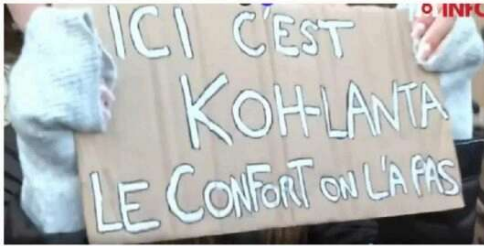 INFO
ICI C'EST
KOH-LANTA
LE CONFORT ON L'A PAS